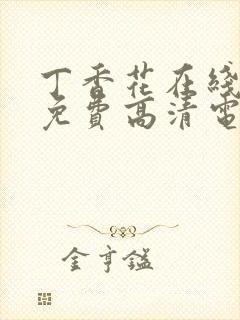 丁香花在线
免费高清电
金亨鎰